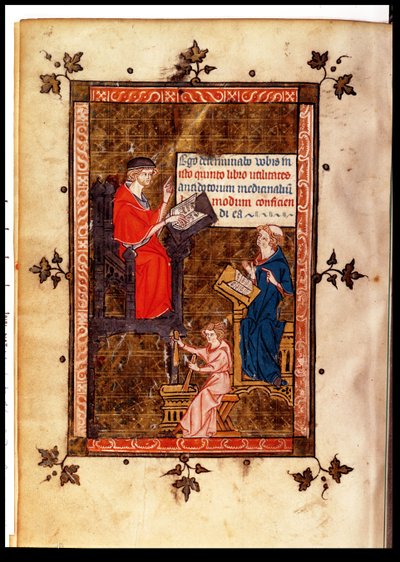 Ego determinabo vobis in
isto quinto libro utilitates
antidotorum medicinaliu
modum conficien
di ea